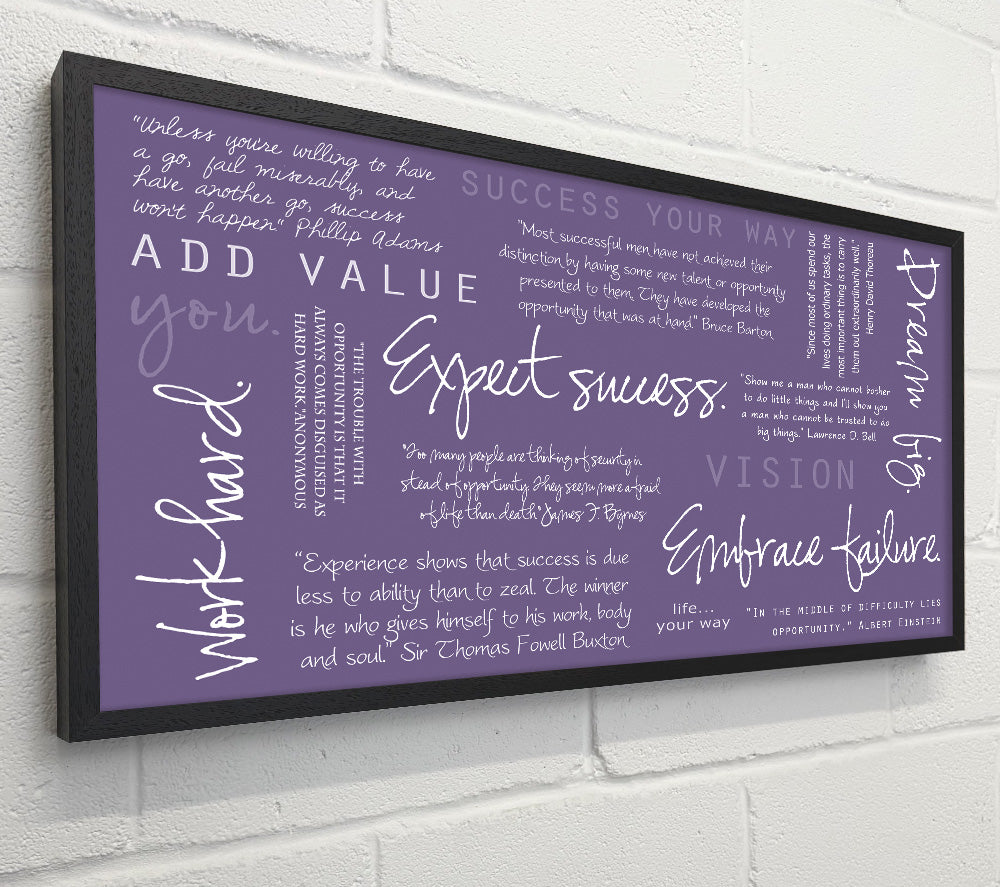 "Unless you're willing to have
a go, fail miserably, and
have another go, success
won't happen" Phillip Adams
SUCCESS YOUR WAY
ADD VALUE
you.
"Most successful men have not achieved their
distinction by having some new talent or opportunity
presented to them. They have developed the
opportunity that was at hand." Bruce Barton
"Since most of us spend our
lives doing ordinary tasks, the
most important thing is to carry
them out extraordinarily well."
Henry David Thoreau
Dream big.
Work hard.
"THE TROUBLE WITH
OPPORTUNITY IS THAT IT
ALWAYS COMES DISGUISED AS
HARD WORK." ANONYMOUS
Expect success.
"Show me a man who cannot bother
to do little things and I'll show you
a man who cannot be trusted to do
big things." Lawrence D. Bell
"Too many people are thinking of security in
stead of opportunity. They seem more afraid
of life than death" James F. Byrnes
VISION
Embrace failure.
"Experience shows that success is due
less to ability than to zeal. The winner
is he who gives himself to his work, body
and soul." Sir Thomas Fowell Buxton
life...
your way
"IN THE MIDDLE OF DIFFICULTY LIES
OPPORTUNITY." ALBERT EINSTEIN